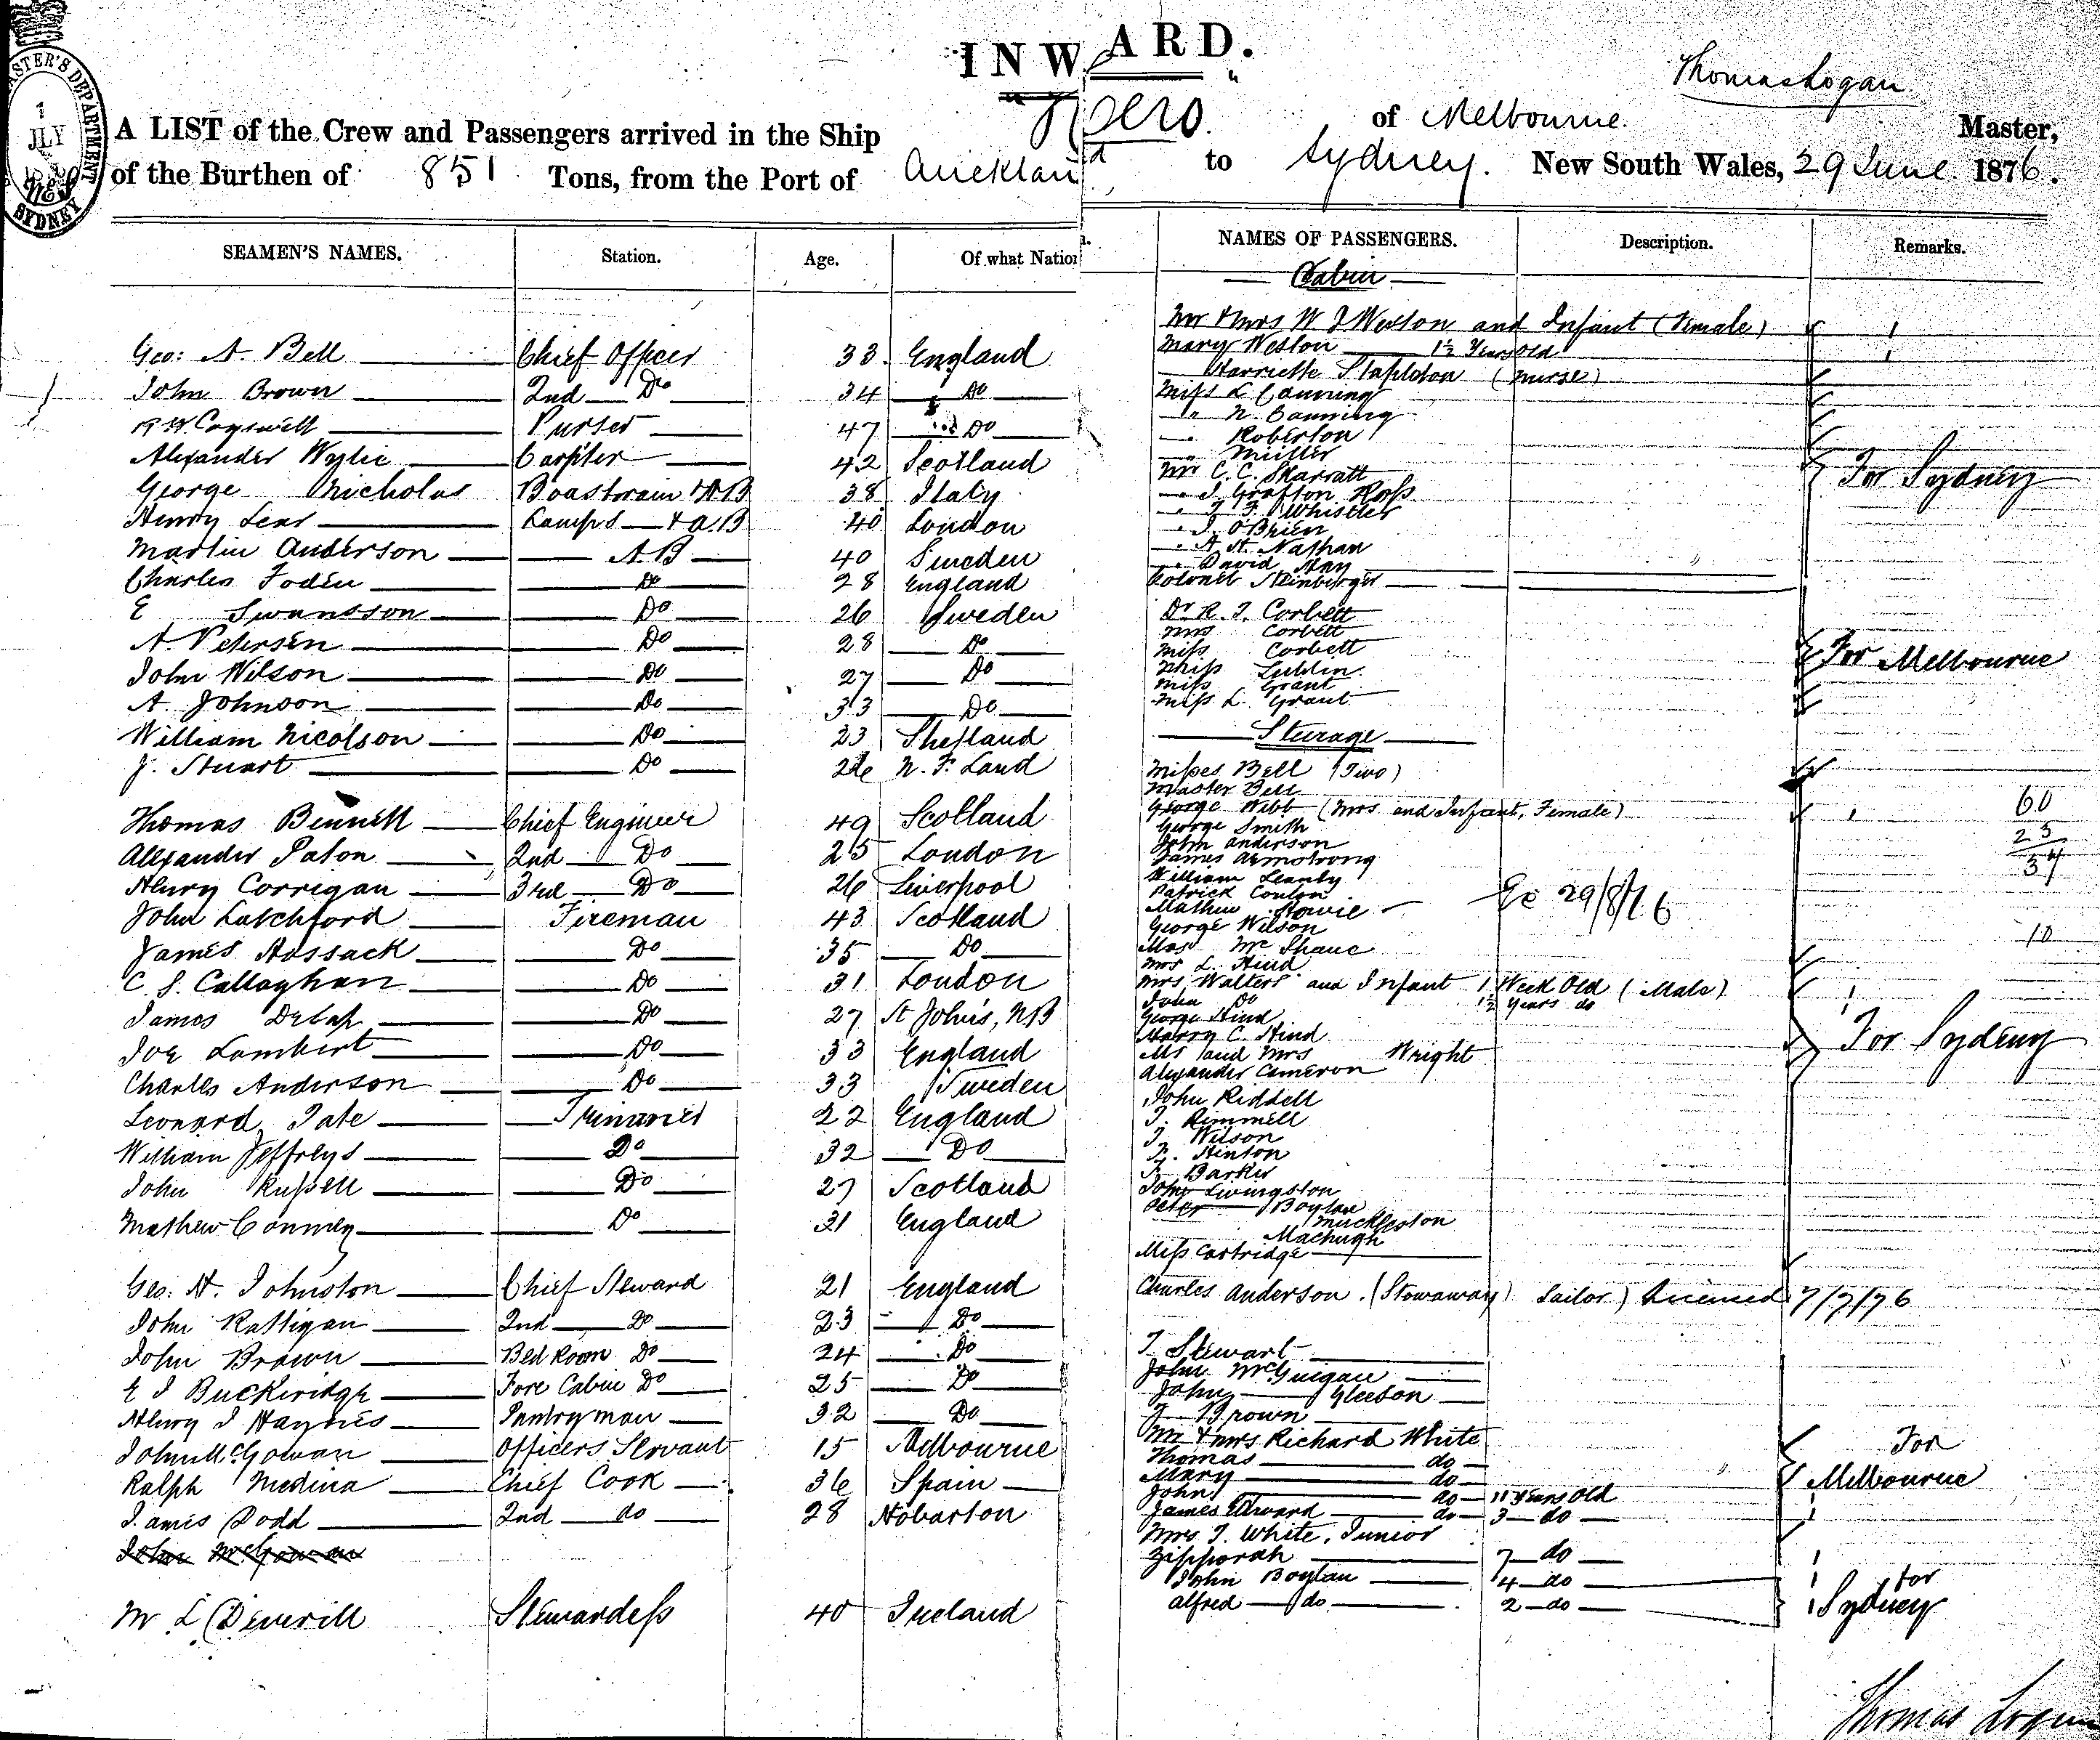 INWARD.
Thomas Logan
A LIST of the Crew and Passengers arrived in the Ship Hero of Melbourne Master,
of the Burthen of 851 Tons, from the Port of Auckland to Sydney. New South Wales, 29 June 1876.
SEAMEN'S NAMES. Station. Age. Of what Nation
Geo: A. Bell Chief Officer 33 England
John Brown 2nd Do 34 Do
Cogswell Purser 47 Do
Alexander Wylie Carpter 42 Scotland
George Nicholas Boastwain & AB 38 Italy
Henry Lear Lamps & A.B 40 London
Martin Anderson A.B 40 Sweden
Charles Foden Do 28 England
E Swansson Do 26 Sweden
A. Petersen Do 28 Do
John Wilson Do 27 Do
A. Johnson Do 33 Do
William Nicolson Do 23 Shetland
J. Stuart Do N. F. Land
Thomas Bennett Chief Engineer 49 Scotland
Alexander Paton 2nd Do 25 London
Henry Corrigan 3rd Do 26 Liverpool
John Latchford Fireman 43 Scotland
James Hossack Do 35 Do
C. S. Callaghan Do 31 London
James Delap Do 27 St John's, NB
Joe Lambert Do 33 England
Charles Anderson Do 33 Sweden
Leonard Tate Trimmer 22 England
William Jeffreys Do 32 Do
John Russell Do 27 Scotland
Mathew Conney Do 31 England
Geo: H. Johnston Chief Steward 21 England
John Rattigan 2nd Do 23 Do
John Brown Bed Room Do 24 Do
E J Buckeridge Fore Cabin Do 25 Do
Henry J Haynes Pantryman 32 Do
John McGowan Officers Servant 15 Melbourne
Ralph Medina Chief Cook 36 Spain
James Dodd 2nd do 28 Hobarton
John McGowan
M L Deverill Stewardess 40 Ireland
NAMES OF PASSENGERS. Description. Remarks.
Cabin
Mr & Mrs W J Weston and Infant (Female)
Mary Weston 1½ Years Old
Harriette Stapleton (Nurse)
Miss L Canning
" N. Canning
" Roberton
" Miller
Mr C. C. Skarratt For Sydney
" J Grafton Ross
" Whistler
" J. O'Brien
" A. H. Nathan
" David Hay
Colonel Steinberger
Dr R. T. Corbett
Mrs Corbett
Miss Corbett For Melbourne
Miss Lublin
Miss Grant
Miss L. Grant
Steerage
Misses Bell (Two)
Master Bell
George Webb (Mrs and Infant, Female) 60
George Smith
John Anderson
James Armstrong
William Leanby
Patrick Conlon
Mathew Howie 29/8/76
George Wilson
McShane 10
Mrs L. Hind
Mrs Walters and Infant 1 Week Old (Male)
John Do 1½ Years do
George Hind
Harry C. Hind For Sydney
Mr and Mrs Wright
Alexander Cameron
John Riddell
T. Rimmell
J. Wilson
Hinton
Barker
John Livingston
Peter Boylan
Muckleston
Machugh
Miss Cartridge
Charles Anderson. (Stowaway) Sailor) 7/7/76
T Stewart
John McGuigan
John Gleeson
J Brown
Mr & Mrs Richard White For
Thomas do
Mary do Melbourne
John do 11 Years Old
James Edward do 3 do
Mrs J. White, Junior
Zipporah 7 do
John Boylan 4 do for
Alfred do 2 do Sydney
Thomas Logan